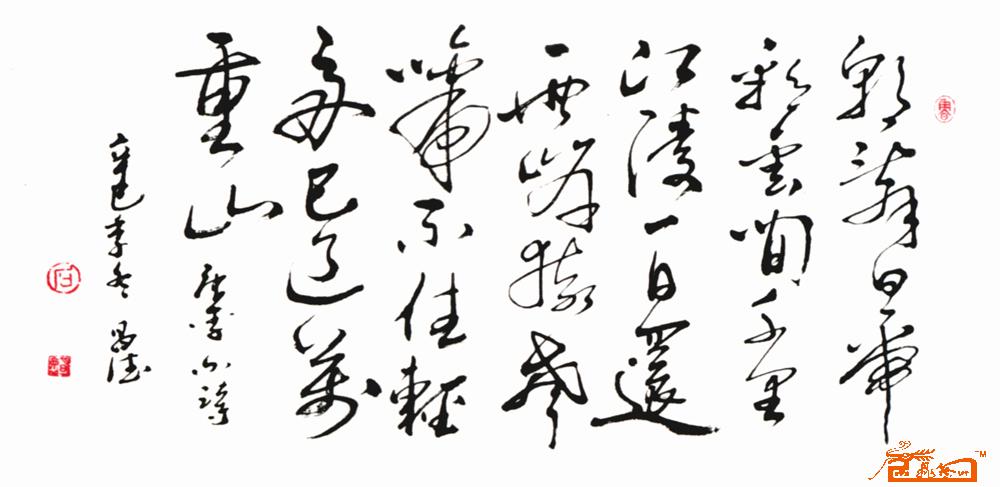 朝辭白帝
彩雲間千里
江陵一日還
兩岸猿聲
啼不住輕
舟已過萬
重山 唐李白詩
季冬